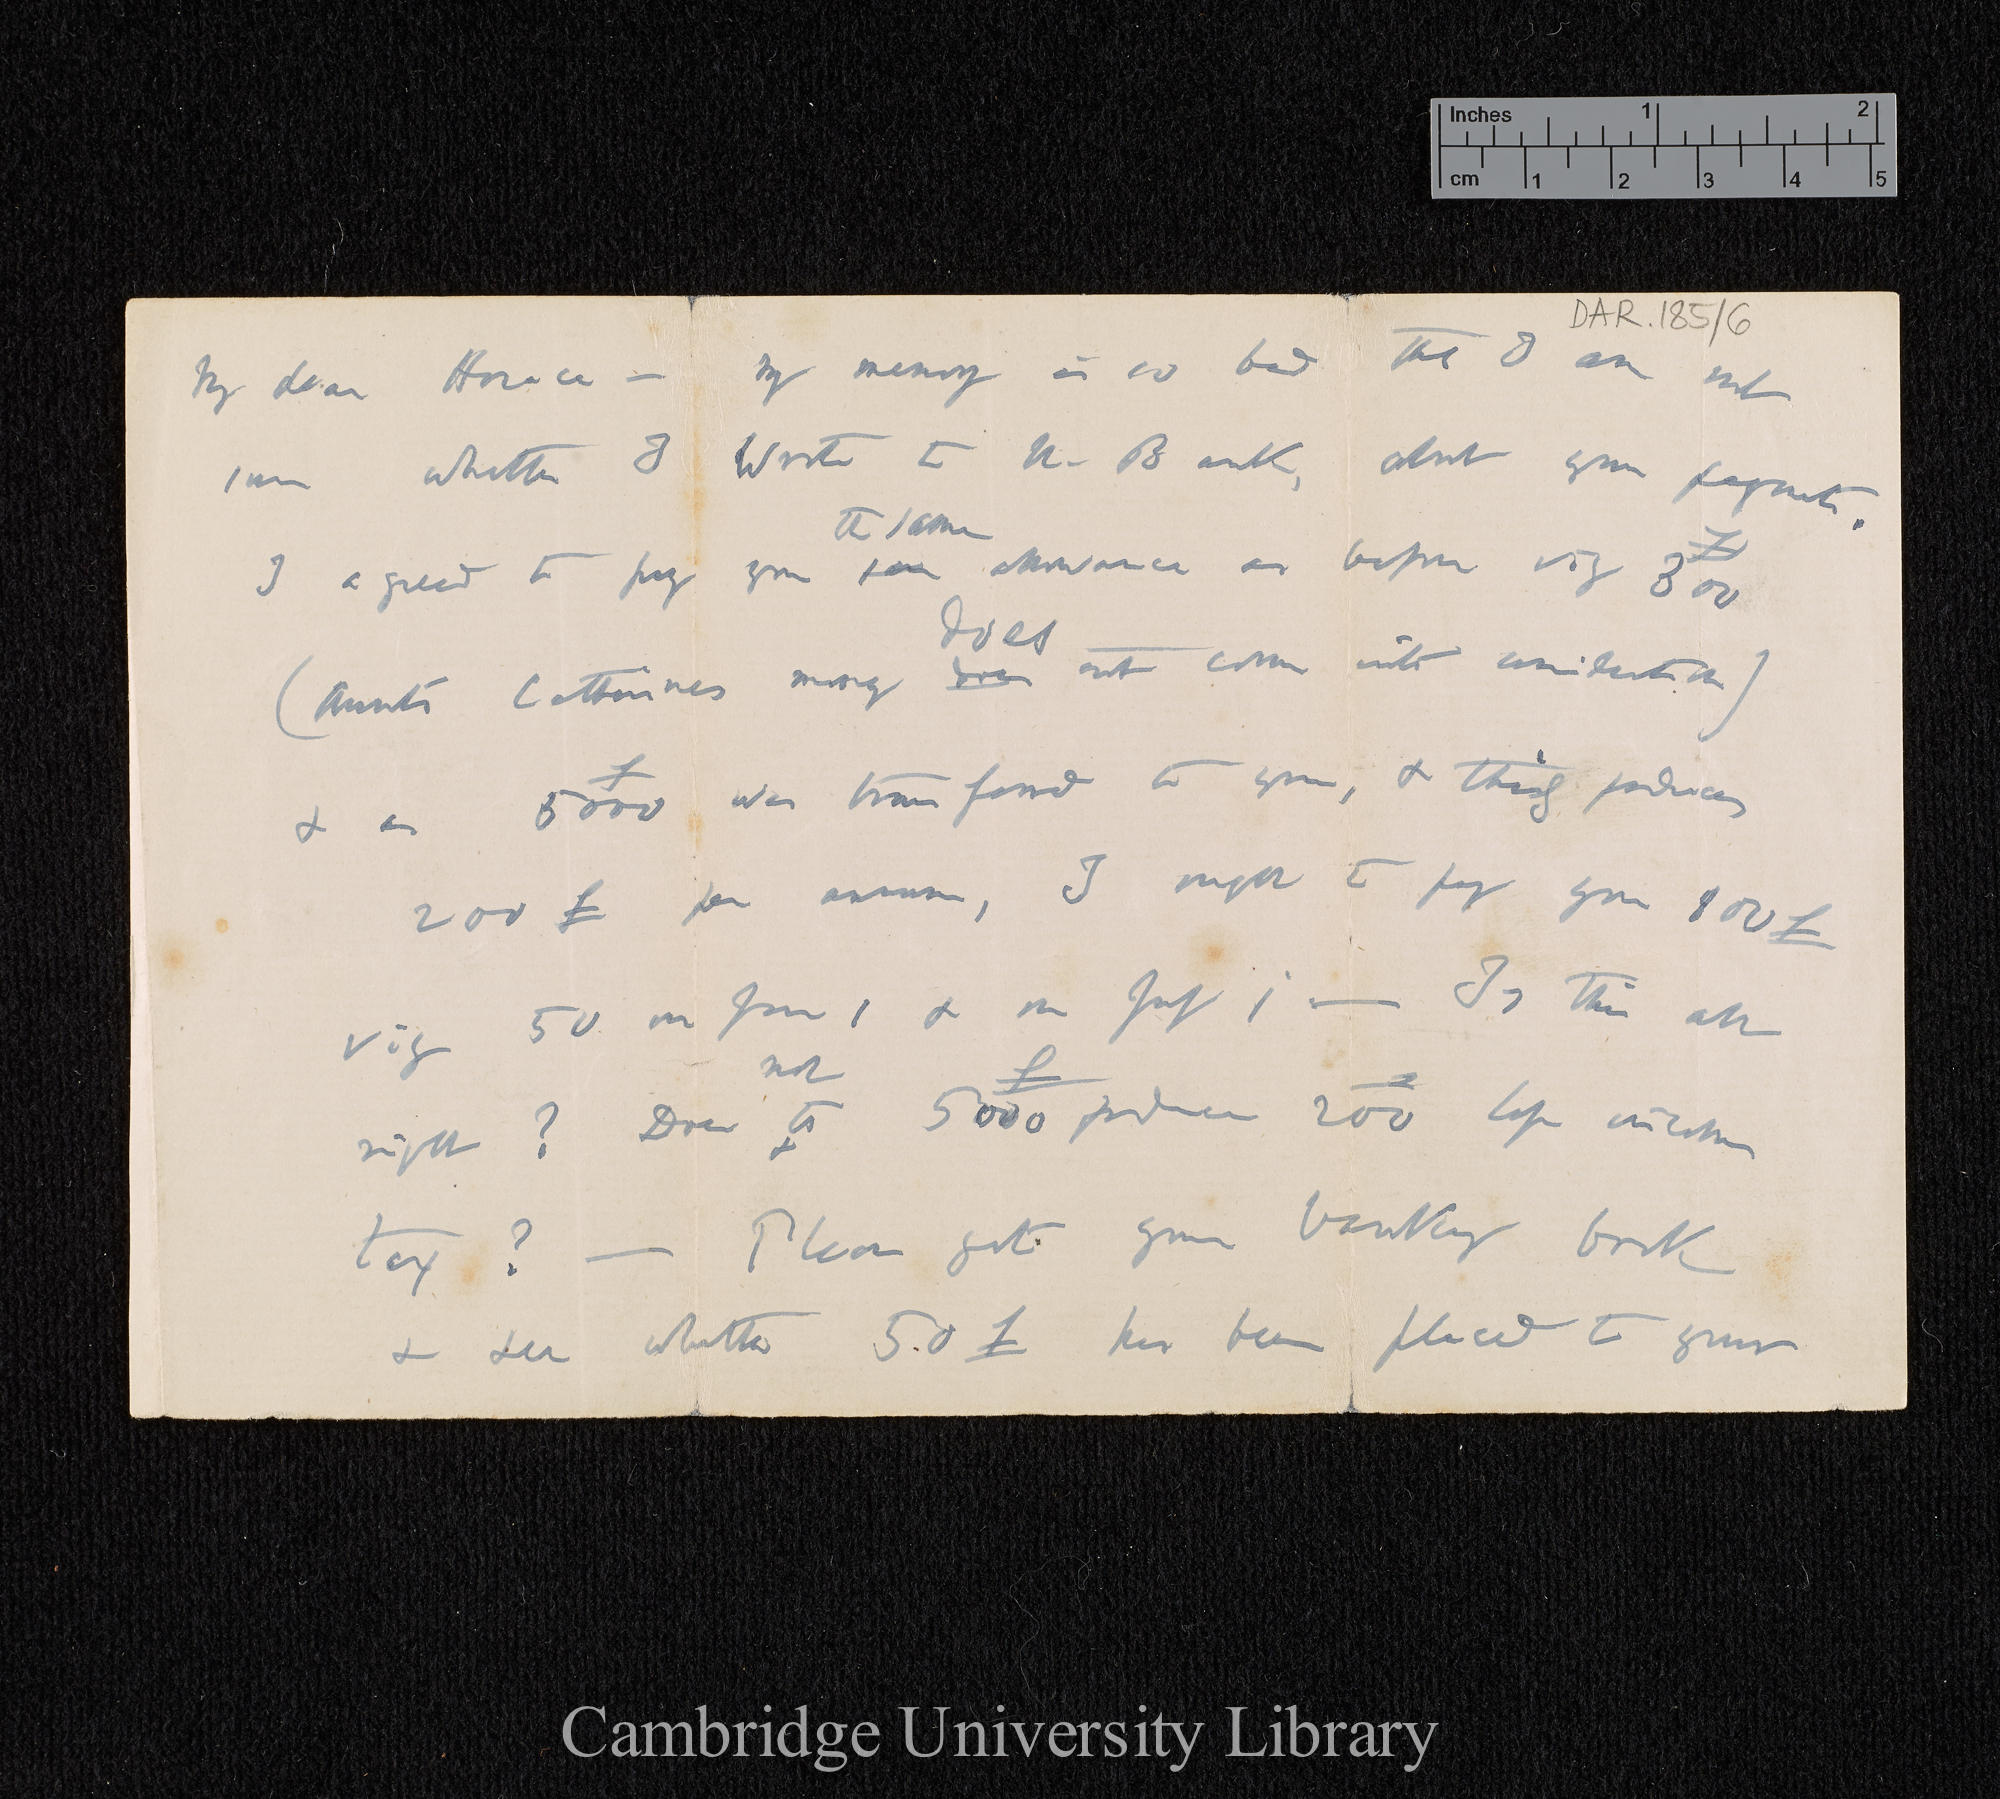 Inches 1 2
cm 1 2 3 4 5
DAR.185/6
My dear Horace — My memory is so bad that I am not
sure whether I wrote to U. Bank, about your payments.
the same
I agreed to pay you allowance as before viz 300£
does
(Aunt Catherines money does not come into consideration)
& as 5000£ was transferred to you, & this produces
200£ per annum, I ought to pay you 100£
viz 50 on Jan 1 & on July 1 — Is this all
right? Does not the 5000£ produce 200 less income
tax? — Please get your banking book
& see whether 50£ has been placed to your
Cambridge University Library